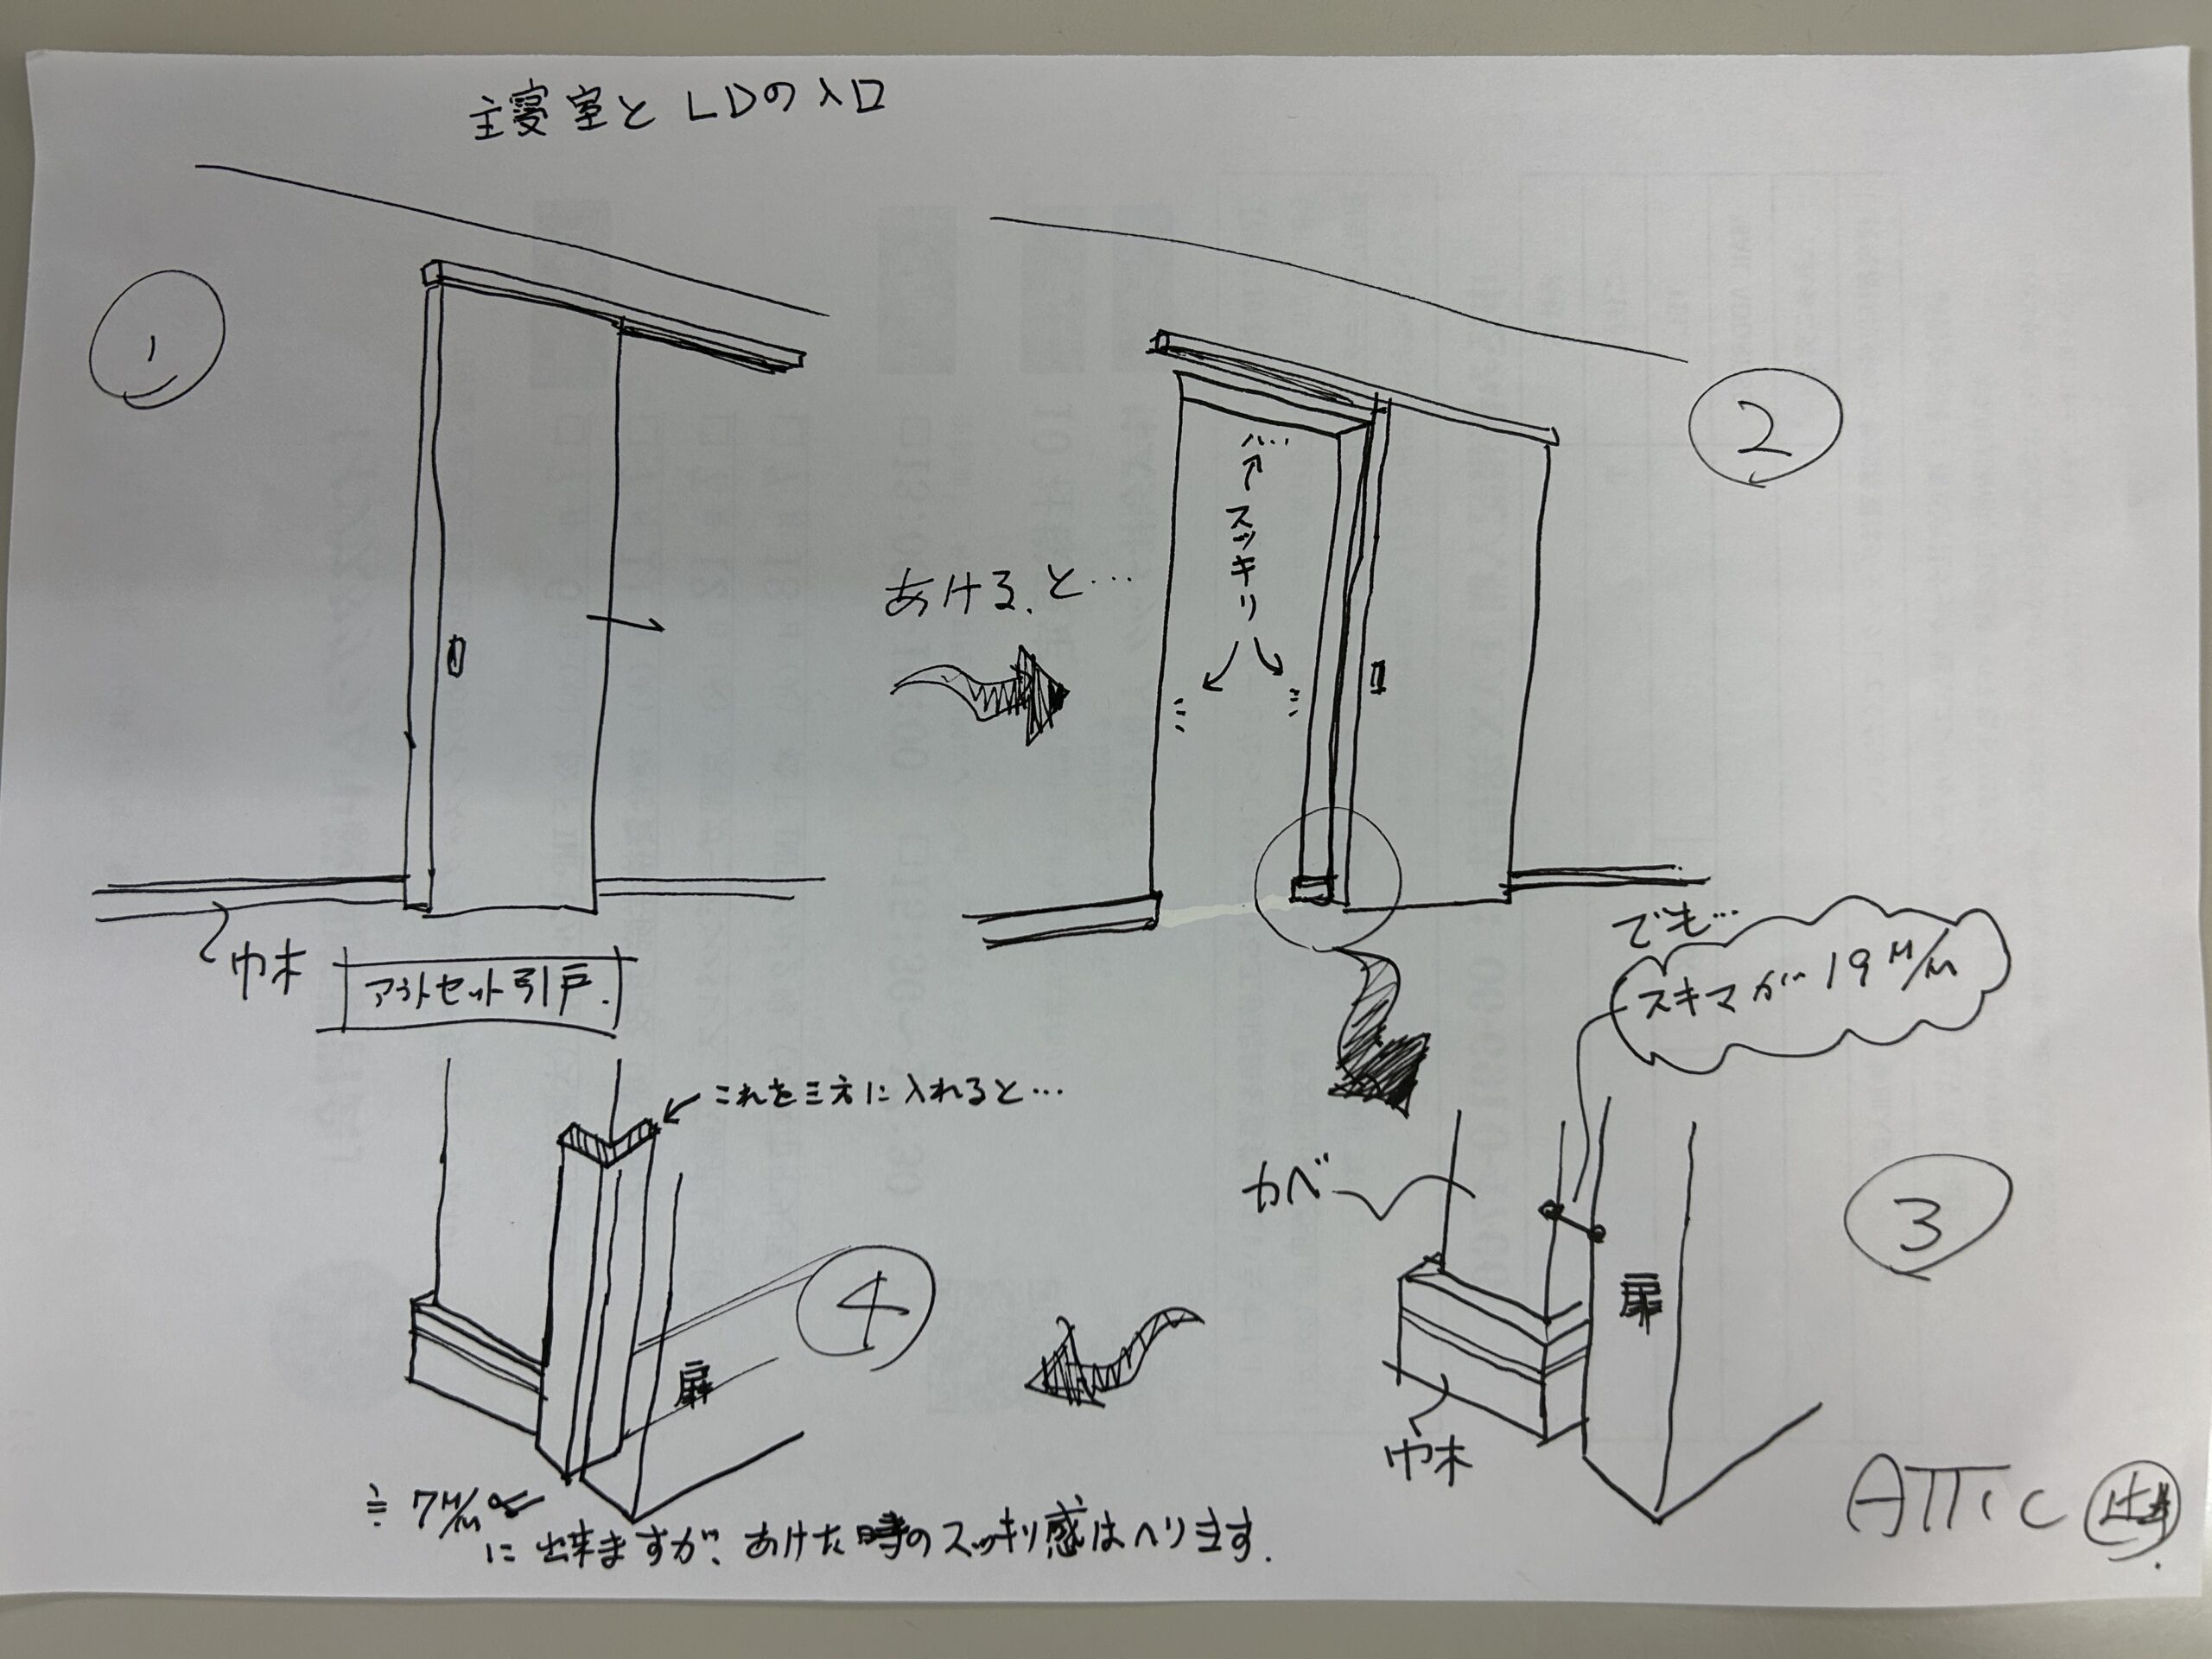 主寝室とLDの入口
1
巾木
アウトセット引戸.
あける、と…
2
スッキリ
でも…
スキマが19M/M
3
カベ
扉
巾木
4
これを三方に入れると…
扉
≒7M/M
に出来ますが、あけた時のスッキリ感はへります.
ATTIC